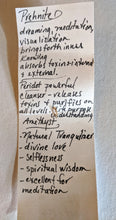 Prehnite
dreaming, meditation,
visualization
brings forth inner
knowing
absorbs toxins internal
& external.
Peridot powerful
cleanser - releases
toxins & purifies on
all levels
Amethyst
- Natural Tranquilizer
- divine love
- selflessness
- spiritual wisdom
- excellent for
meditation